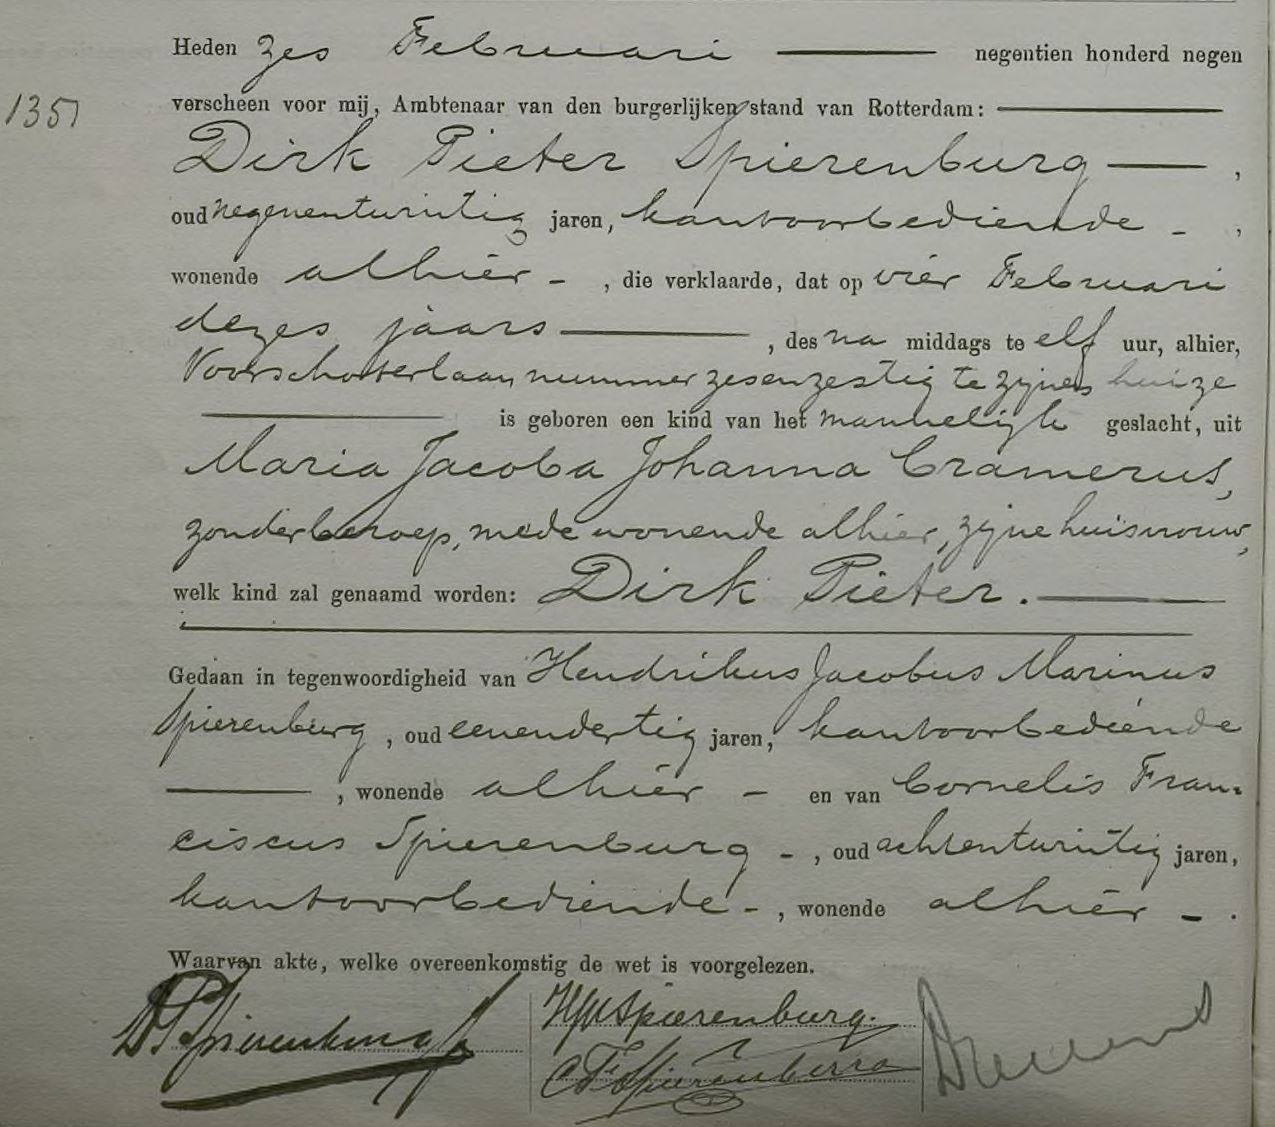 Heden zes Februari negentien honderd negen
1351
verscheen voor mij, Ambtenaar van den burgerlijken stand van Rotterdam:
Dirk Pieter Spierenburg,
oud negenentwintig jaren, kantoorbediende - ,
wonende alhier - , die verklaarde, dat op vier Februari
dezes jaars , des na middags te elf uur, alhier,
Voorschoterlaan nummer zesenzestig te zijnen huize
is geboren een kind van het mannelijk geslacht, uit
Maria Jacoba Johanna Cramerus,
zonder beroep, mede wonende alhier, zijne huisvrouw,
welk kind zal genaamd worden: Dirk Pieter.
Gedaan in tegenwoordigheid van Hendrikus Jacobus Marinus
Spierenburg, oud eenendertig jaren, kantoorbediende
, wonende alhier - en van Cornelis Fran=
ciscus Spierenburg - , oud achtentwintig jaren,
kantoorbediende - , wonende alhier - .
Waarvan akte, welke overeenkomstig de wet is voorgelezen.
DPSpierenburg
HJMSpierenburg.
CFSpierenburg